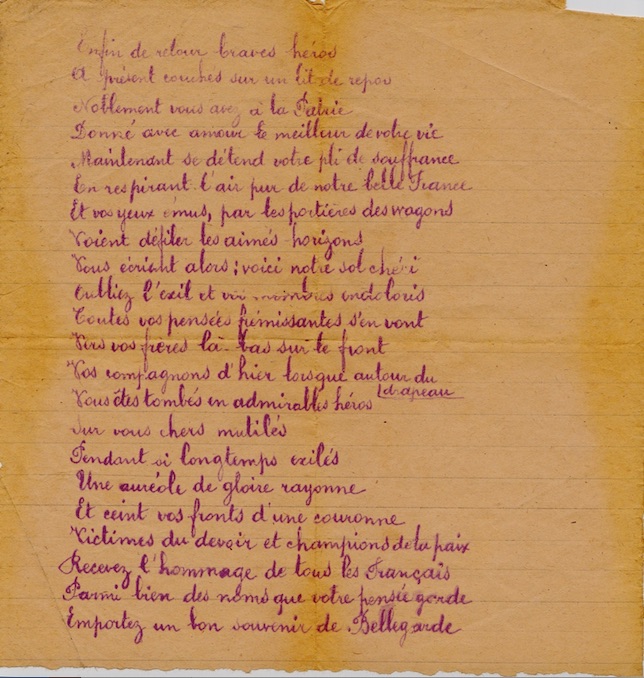 Enfin de retour braves héros
A présent couchés sur un lit de repos
Noblement vous avez à la Patrie
Donné avec amour le meilleur de votre vie
Maintenant se détend votre pli de souffrance
En respirant l'air pur de notre belle France
Et vos yeux émus, par les portières des wagons
Voient défiler les aimés horizons
Vous écriant alors : voici notre sol chéri
Oubliez l'exil et vos membres endoloris
Toutes vos pensées frémissantes s'en vont
Vers vos frères là-bas sur le front
Vos compagnons d'hier lorsque autour du
drapeau
Vous êtes tombés en admirables héros
Sur vous chers mutilés
Pendant si longtemps exilés
Une auréole de gloire rayonne
Et ceint vos fronts d'une couronne
Victimes du devoir et champions de la paix
Recevez l'hommage de tous les Français
Parmi bien des noms que votre pensée garde
Emportez un bon souvenir de Bellegarde